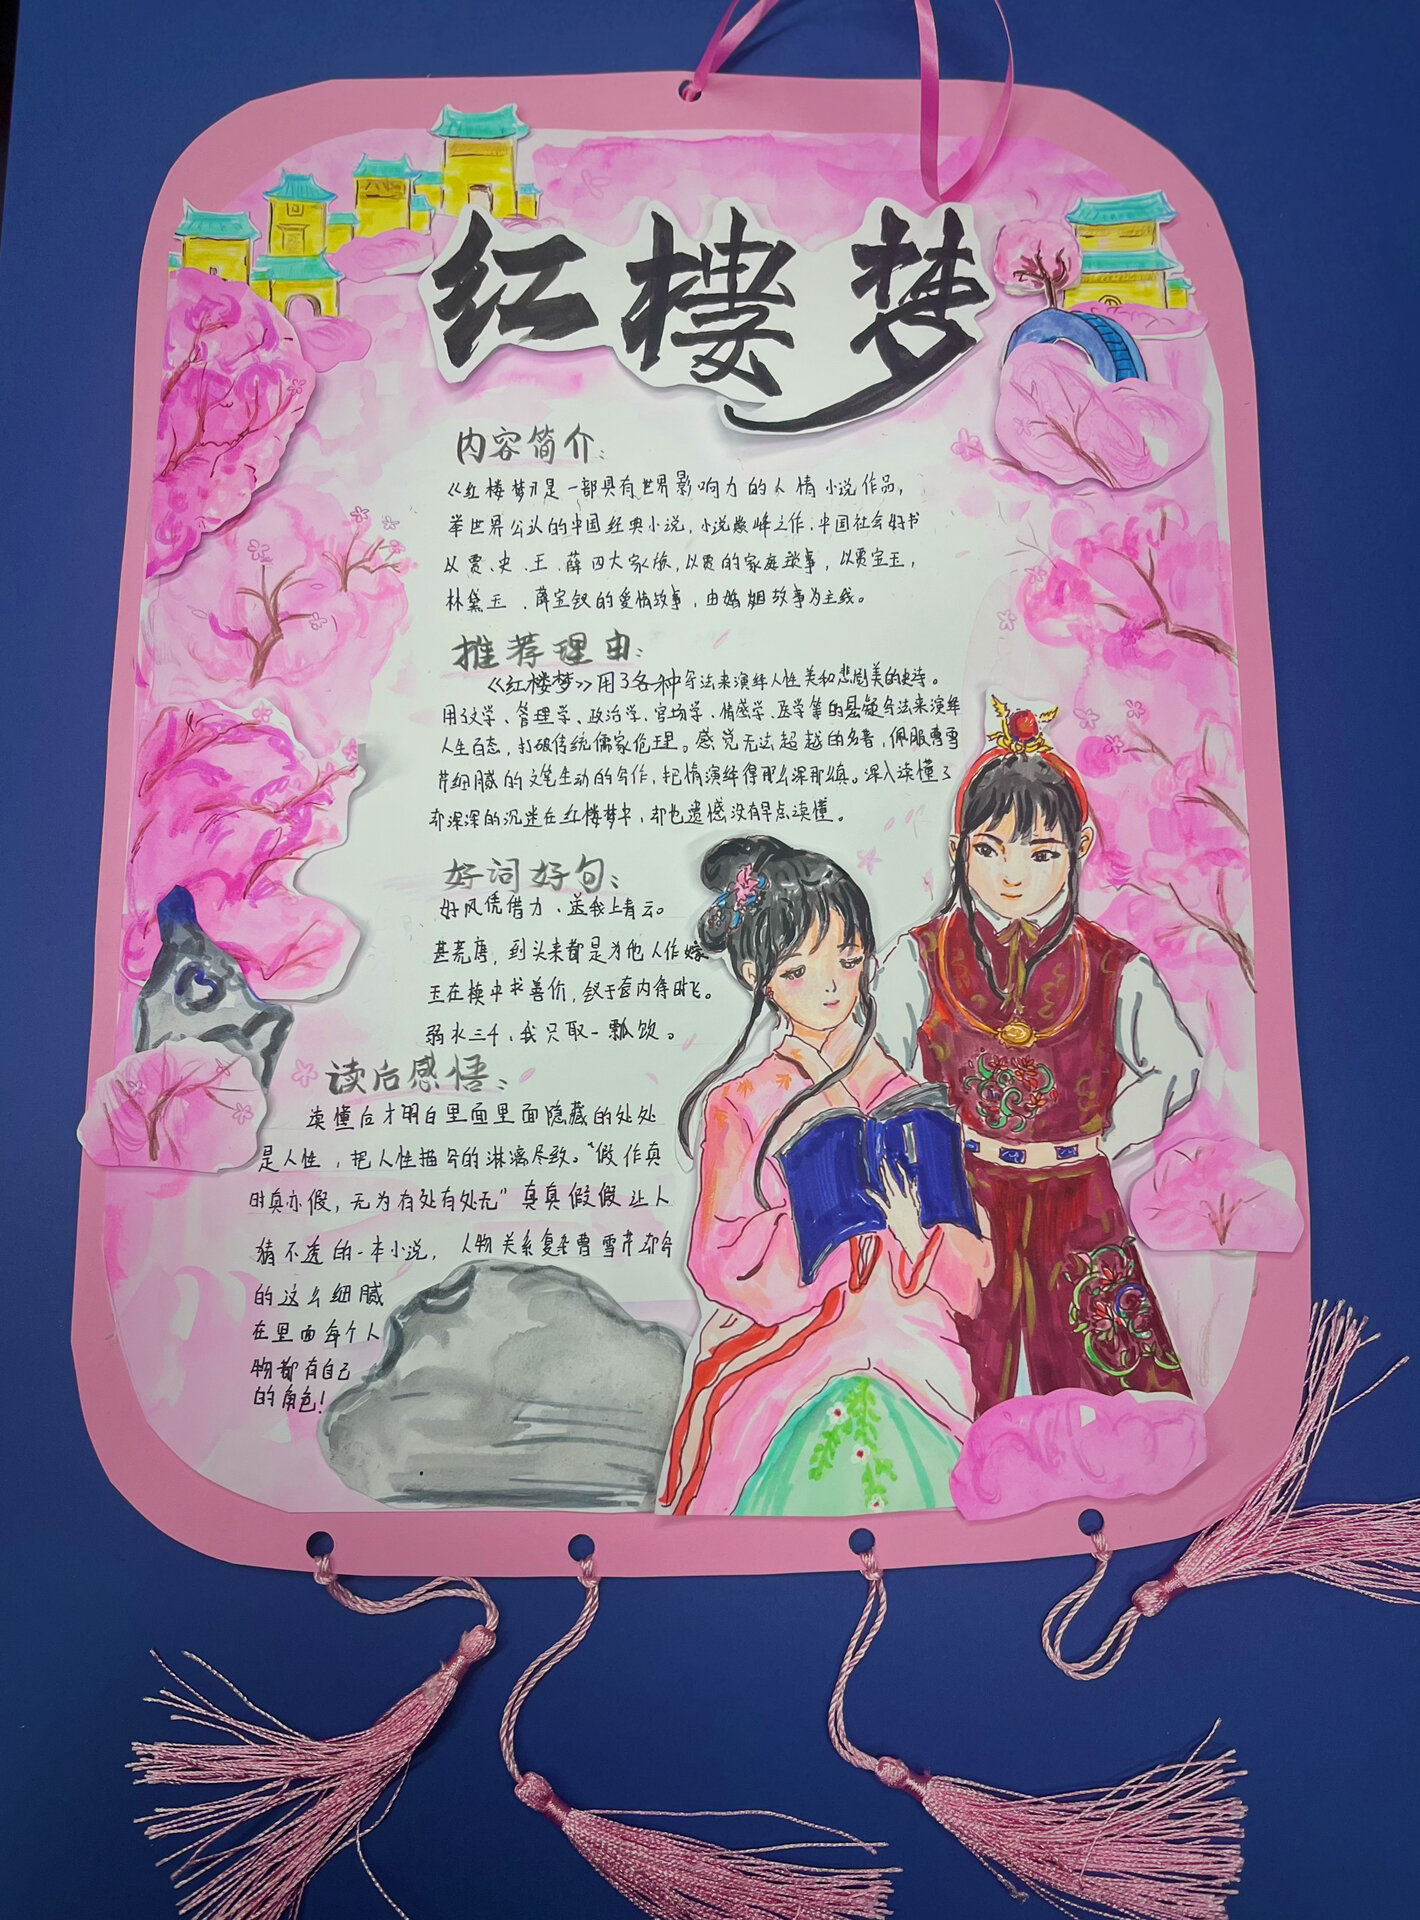 红楼梦
内容简介：
《红楼梦》是一部具有世界影响力的人情小说作品，
举世界公认的中国经典小说，小说巅峰之作，中国社会好书
以贾、史、王、薛四大家族，以贾的家庭琐事，以贾宝玉，
林黛玉、薛宝钗的爱情故事，由婚姻故事为主线。
推荐理由：
《红楼梦》用了各种写法来演绎人性美和悲剧美的史诗。
用了文学、管理学、政治学、官场学、情感学、医学等的悬疑写法来演绎
人生百态，打破传统儒家伦理。感觉无法超越的名著，佩服曹雪
芹细腻的文笔生动的写作，把情演绎得那么深那么真。深入读懂了
却深深的沉迷在红楼梦中，却也遗憾没有早点读懂。
好词好句：
好风凭借力、送我上青云。
甚荒唐，到头来都是为他人作嫁
玉在椟中求善价，钗于奁内待时飞。
弱水三千，我只取一瓢饮。
读后感悟：
读懂后才明白里面里面隐藏的处处
是人性，把人性描写的淋漓尽致。“假作真
时真亦假，无为有处有处无”真真假假让人
猜不透的一本小说，人物关系复杂曹雪芹却写
的这么细腻
在里面每个人
物都有自己
的角色！